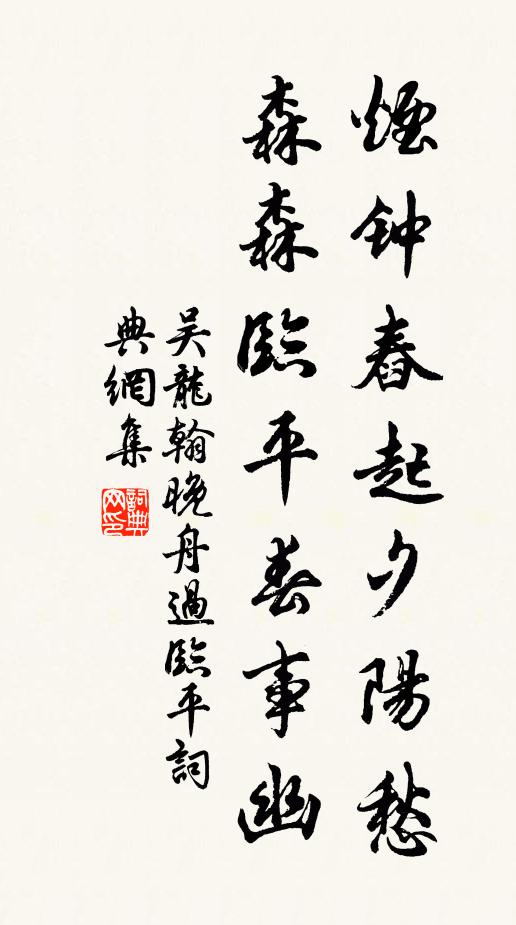 煙钟舂起夕陽愁
森森臨平春事幽
吴龍翰晚舟過臨平詞
典網集
詞典
网印